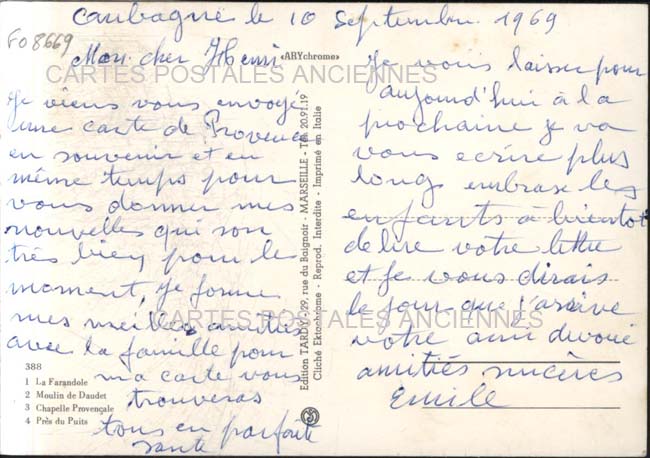 Caubagne le 10 Septembre 1969
FO 8669
Mon cher Henri
«ARYchrome»
CARTES POSTALES ANCIENNES
Je viens vous envoyé
une carte de Provence
en souvenir et en
même temps pour
vous donner mes
nouvelles qui son
très bien pour le
moment, je forme
mes meilles amitiés
avec la famille pour
ma carte vous
trouveras
tous en parfaite
sante
388
1 La Farandole
2 Moulin de Daudet
3 Chapelle Provençale
4 Près du Puits
Edition TARDY - 29, rue du Baignoir - MARSEILLE - Tél. 20.91.19
Cliché Ektachrome - Reprod. Interdite - Imprimé en Italie
Je vous laisse pour
aujourd'hui à la
prochaine je va
vous ecrire plus
long embrase les
enfants à bientot
de lire votre lettre
et je vous dirais
le jour que j'arrive
CARTES POSTALES ANCIENNES
votre ami devoué
amitiés sincères
Emile